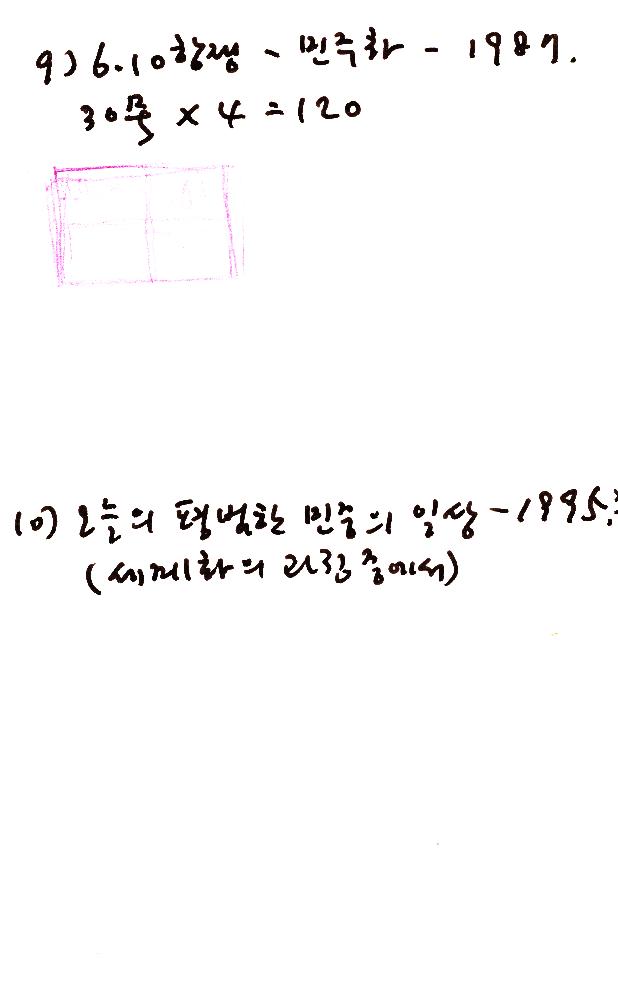 9) 6.10항쟁 - 민주화 - 1987.
30쪽 x 4 = 120
10) 오늘의 평범한 민중의 일상 - 1995.
(세계화의 과정 중에서)